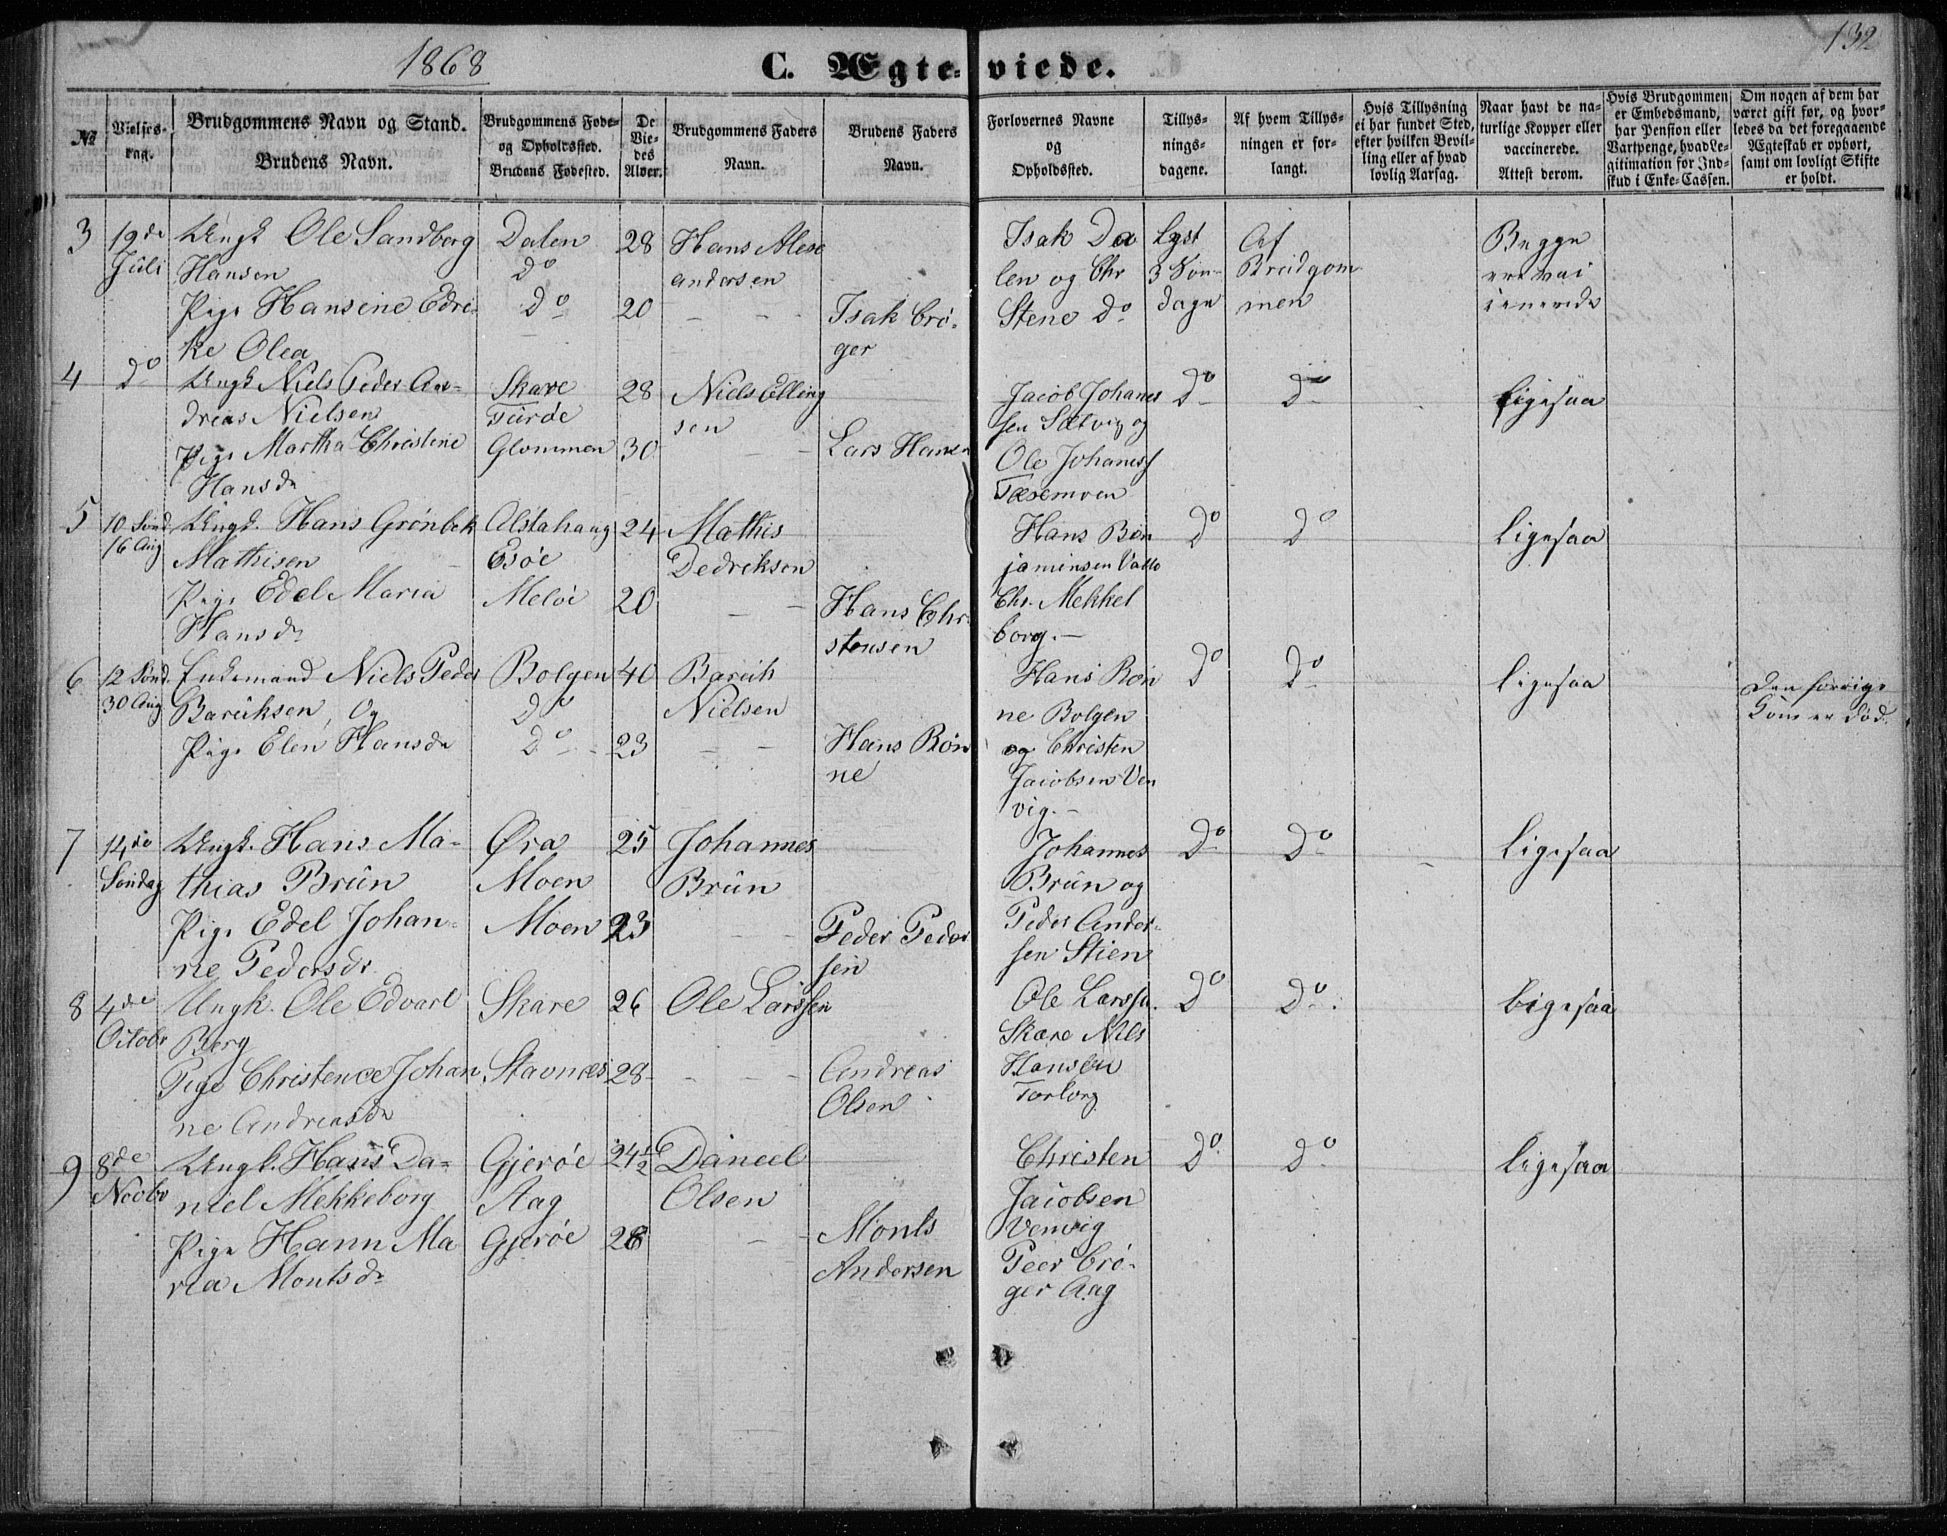 1868
C. Ægteviede.
132
№
Vielses-
dag.
Brudgommens Navn og Stand.
Brudens Navn.
Brudgommens Føde-
og Opholdssted.
Brudens Fødested.
De
Vie-
des
Alder.
Brudgommens Faders
Navn.
Brudens Faders
Navn.
Forlovernes Navne
og
Opholdssted.
Tillys-
nings-
dagene.
Af hvem Tillys-
ningen er for-
langt.
Hvis Tillysning
ei har fundet Sted,
efter hvilken Bevil-
ling eller af hvad
lovlig Aarsag.
Naar havt de na-
turlige Kopper eller
vaccinerede.
Attest derom.
Hvis Brudgommen
er Embedsmand,
har Pension eller
Vartpenge, hvad Le-
gitimation for Ind-
skud i Enke-Cassen.
Om nogen af dem har
været gift før, og hvor-
ledes da det foregaaende
Ægteskab er ophørt,
samt om lovligt Skifte
er holdt.
3
19de
Juli
Ungk Ole Sandberg
Hansen
Pige Hansine Edri-
ke Olea
Dalen
Do
Do
28
20
Hans Alex
andersen
Isak Crö-
ger
Isak Da
len og Chr
Stene Do
Lyst
3 Søn-
dage
Af
Brudgom
men
Begge
ere vac
cinerede
4
Do
Ungk Niels Peder An-
dreas Nielsen
Pige Martha Christine
Hansdr
Skare
Glommen
28
30
Niels Elling
sen
Lars Hansen
Jacob Johanes
sen Sætvig og
Ole Johaness
Do
Do
Ligesaa
5
10 Sønd
16 Aug
Ungk. Hans Grönbek
Mathisen
Pige Edel Maria
Hansdr
Alstahaug
Esöe
Melöe
24
20
Mathis
Dedriksen
Hans Chri
stensen
Hans Ben
jaminsen
Chr. Mekkel
borg.-
Do
Do
Ligesaa
6
12 Sønd.
30 Aug
Enkemand Niels Peder
Barüksen, Og
Pige Elen Hansdr
Bolgen
Do
Do
40
23
Barük
Nielsen
Hans Rön
ne
Hans Rön
ne Bolgen
og Christen
Jacobsen Ven
vig.-
Do
Do
Ligesaa
Den forrige
Kone er død.
7
14de
Søndag
Ungk. Hans Ma-
thias Brün
Pige Edel Johan-
ne Pedersdr.
Øra
Moen
Moen
25
23
Johannes
Brün
Peder Peder
sen
Johannes
Brün og
Peder Ander-
sen Stien
Do
Do
Ligesaa
8
4de
Octobr
Ungk. Ole Edvart
Berg
Pige Christence Johan
ne Andreasdr
Skare
Stavnæs
26
28
Ole Larssen
Andreas
Olsen
Ole Larssn.
Skare Nils
Hansen
Do
Do
Ligesaa
9
8de
Novbr
Ungk. Hans Da-
niel Mekkeborg
Pige Hann Ma
ria Montsdr
Gjeröe
Aag
Gjeröe
24½
28
Daneel
Olsen
Monts
Andersen
Christen
Jacobsen
Venvig
Peer Crö-
ger Aag
Do
Do
Ligesaa